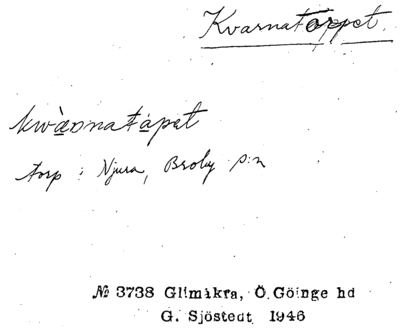 Kvarnatorpet.
kwàonatápet
torp i Njura, Broby s:n
№ 3738 Glimåkra, Ö. Göinge hd
G. Sjöstedt 1946